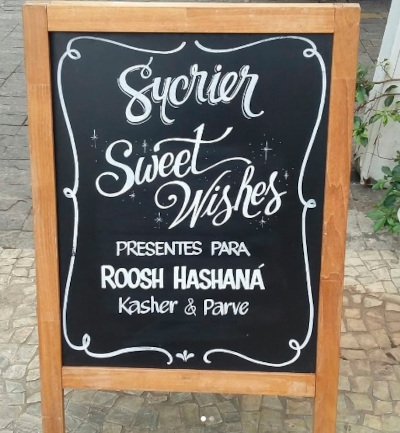 Sucrier
Sweet
Wishes
PRESENTES PARA
ROOSH HASHANÁ
Kasher & Parve